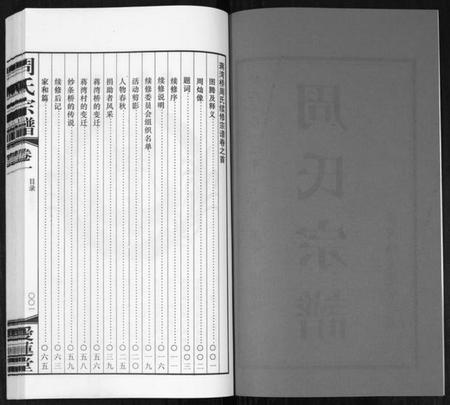 蒋湾桥周氏续修宗谱卷之首
图腾及释义……〇〇一
周灿像……〇〇二
题词……〇〇三
续修序……〇一一
续修说明……〇一六
续修委员会组织名单……〇一九
活动剪影……〇二〇
人物春秋……〇二五
捐助者风采……〇三九
蒋湾桥的变迁……〇五六
蒋湾村的变迁……〇五八
纱条桥的传说……〇五九
续修后记……〇六三
家和篇……〇六五
周氏宗谱
卷一
目录
〇〇一
爱莲堂
周氏宗譜